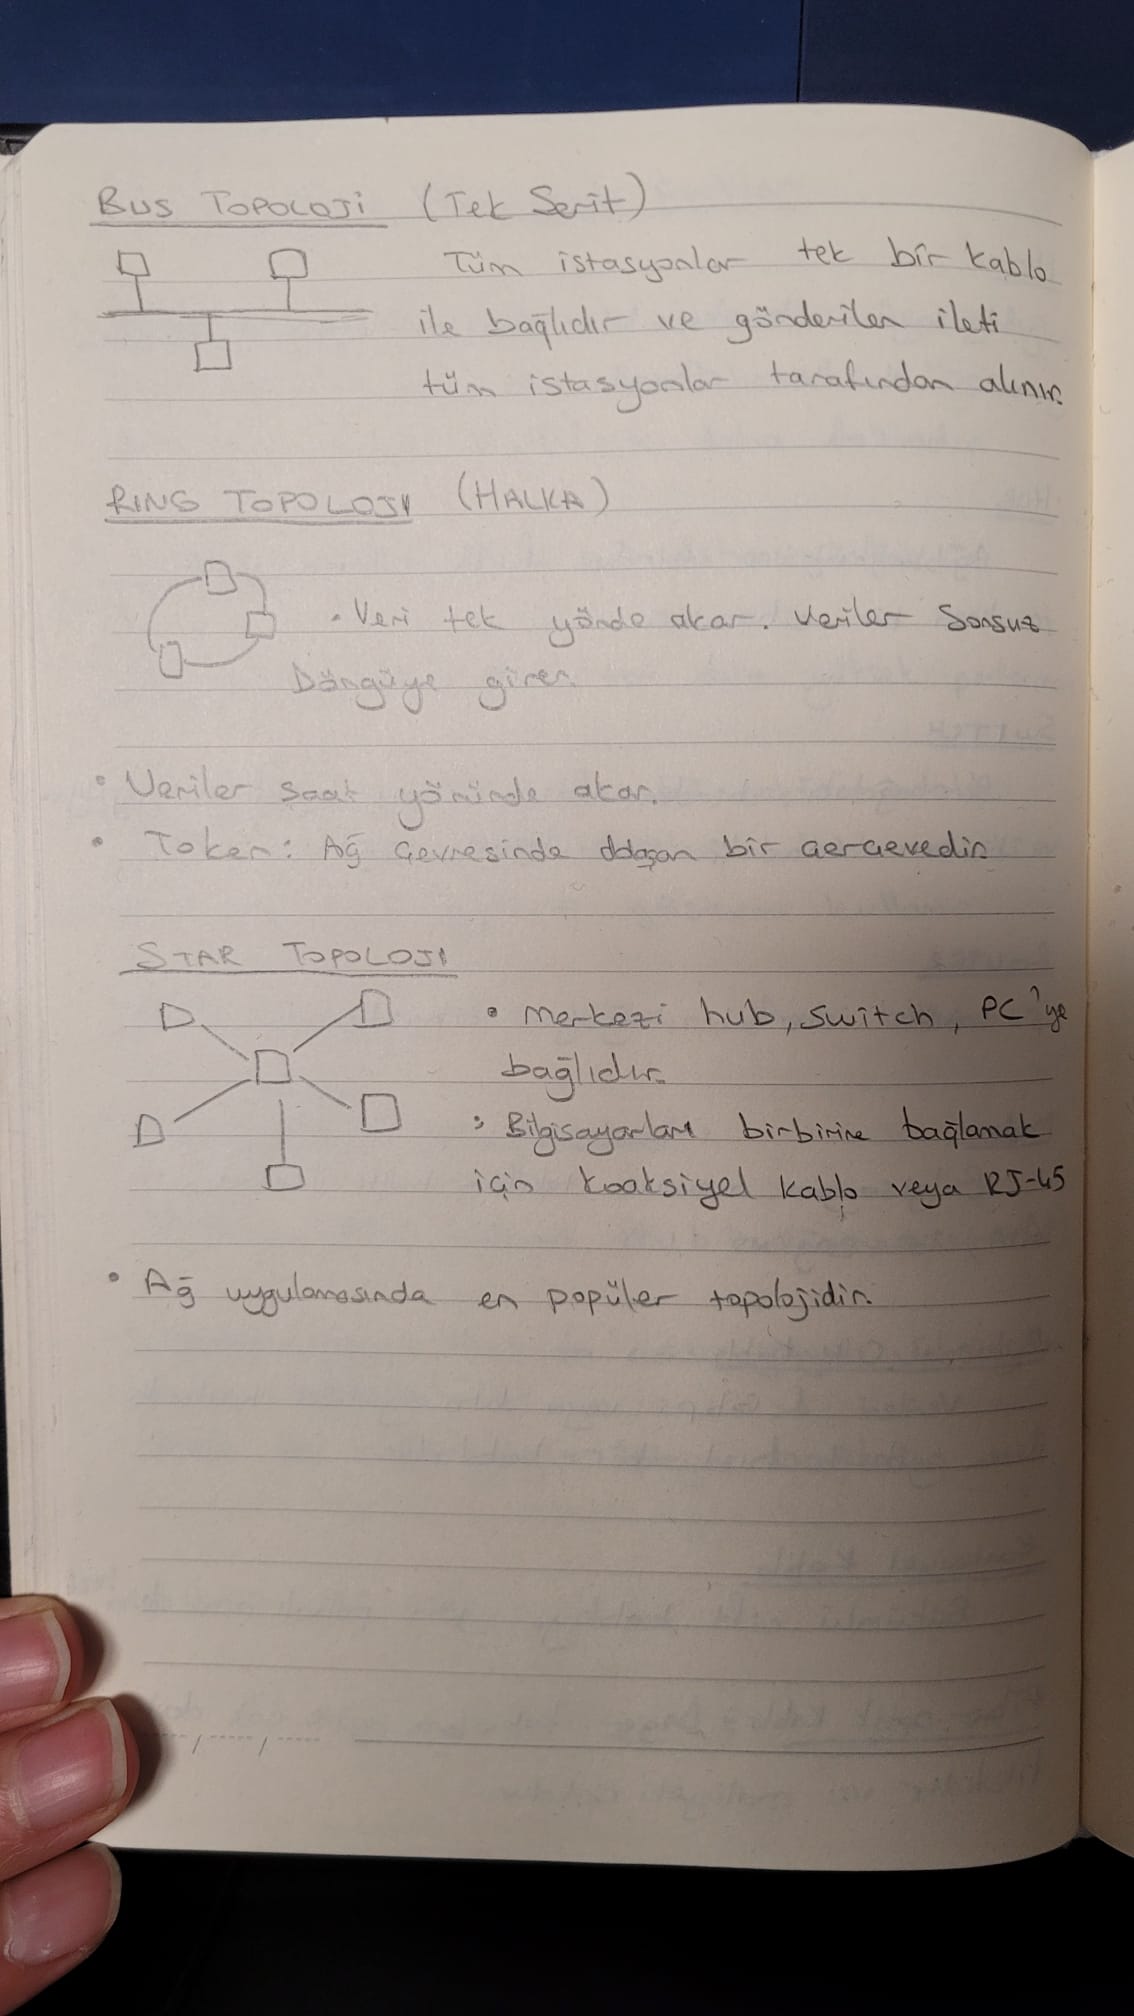 BUS TOPOLOJİ (Tek Serit)
Tüm istasyonlar tek bir kablo
ile bağlıdır ve gönderilen ileti
tüm istasyonlar tarafından alınır.
RING TOPOLOJI (HALKA)
• Veri tek yönde akar. Veriler Sonsuz
Döngüye girer.
• Veriler saat yönünde akar.
• Token: Ağ çevresinde dolaşan bir çerçevedir.
STAR TOPOLOJI
• Merkezi hub, switch, PC'ye
bağlıdır.
• Bilgisayarları birbirine bağlamak
için koaksiyel kablo veya RJ-45
• Ağ uygulamasında en popüler topolojidir.